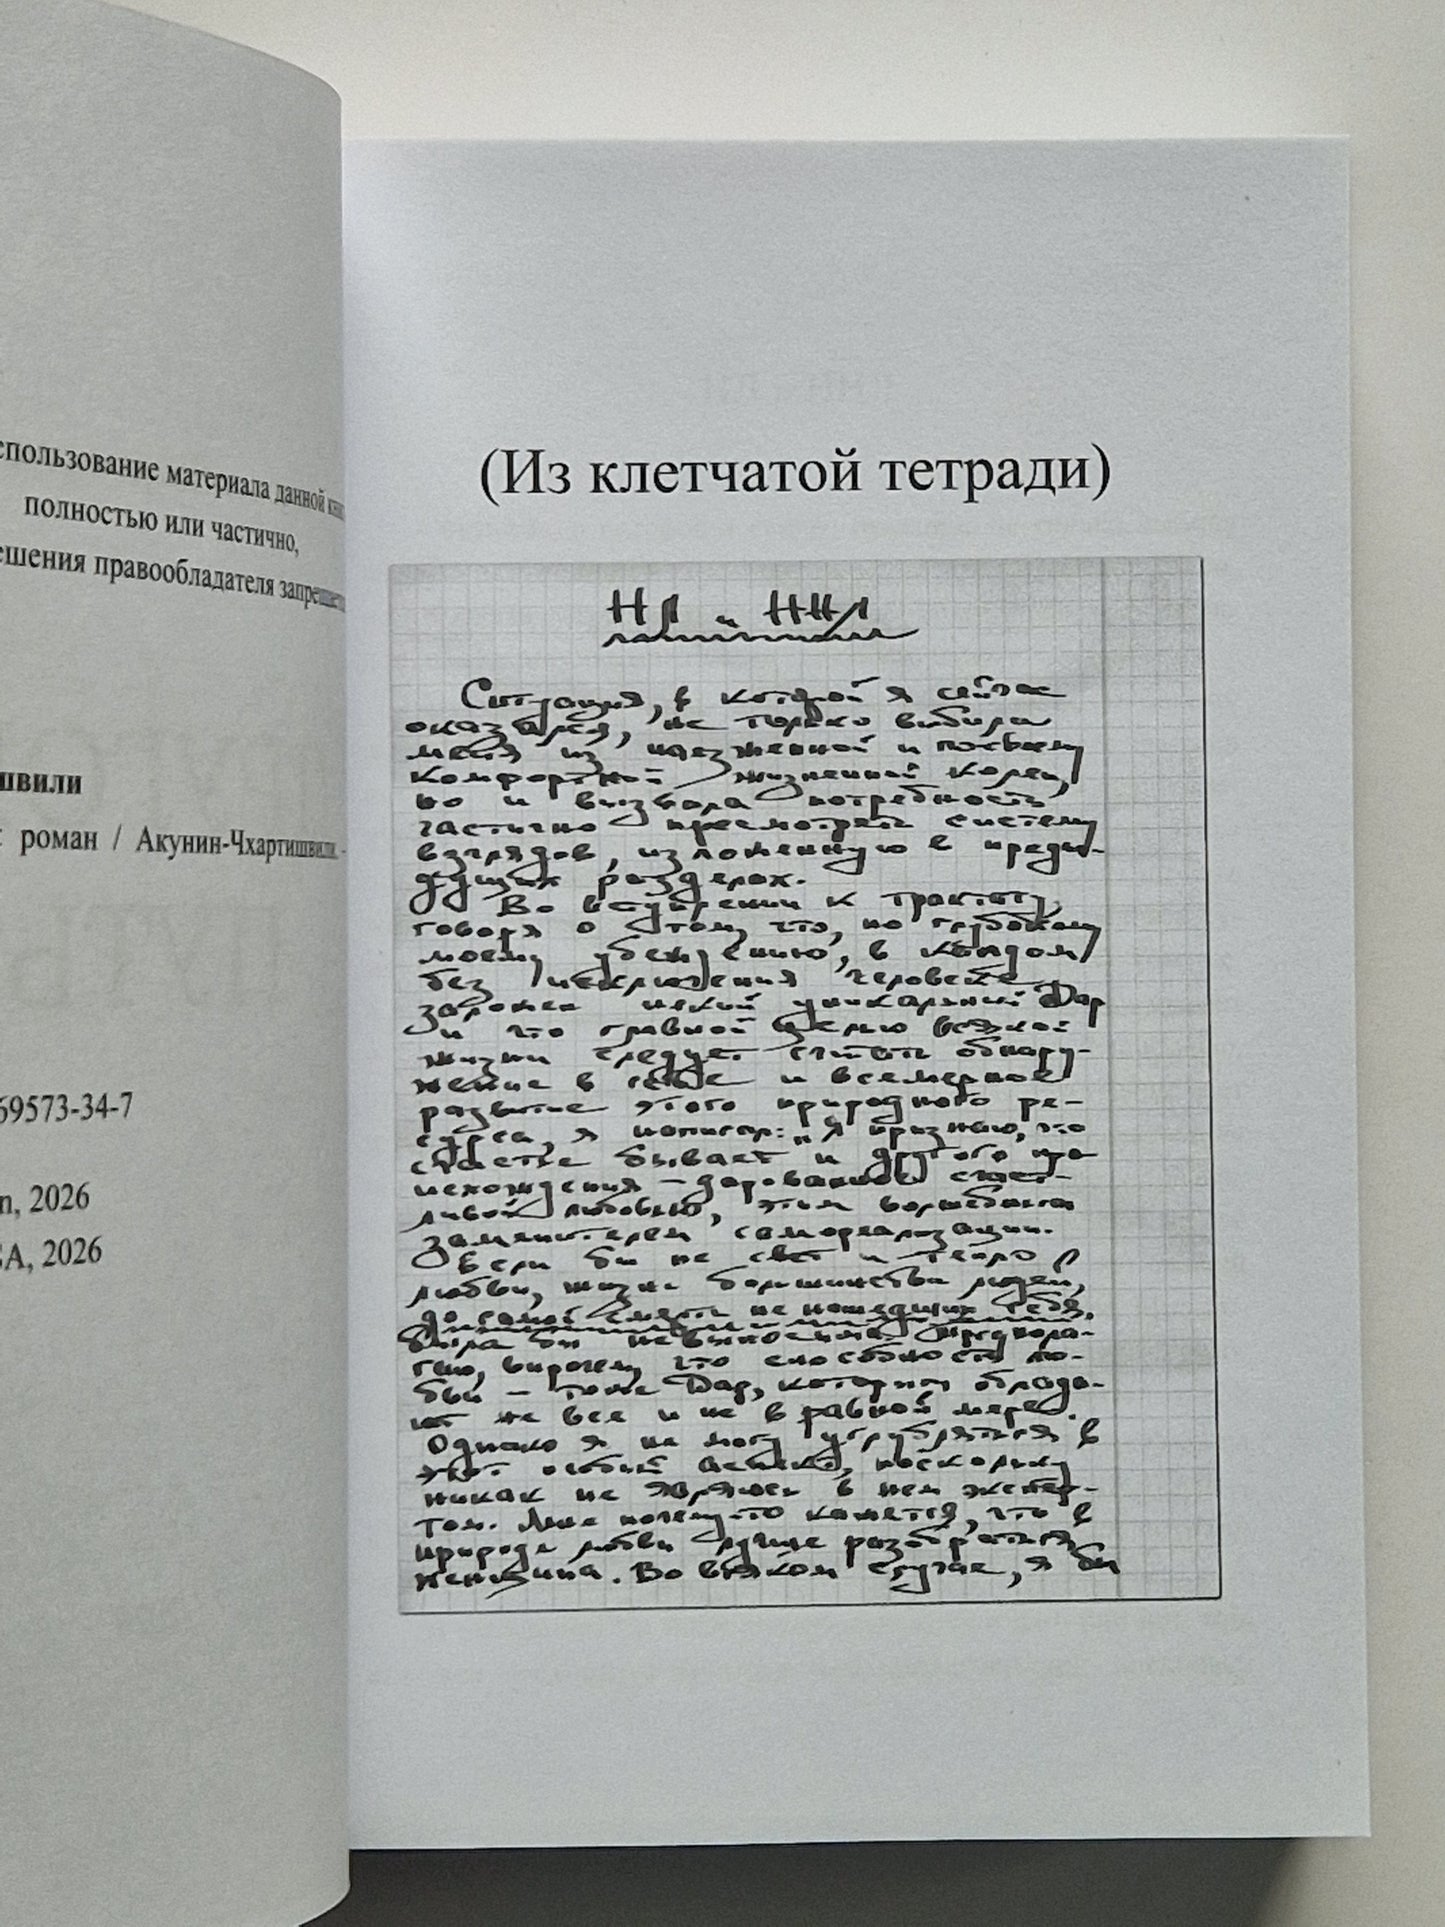 спользование материала данной
полностью или частично,
ешения правообладателя запрещ
швили
: роман / Акунин-Чхартишвили. -
69573-34-7
n, 2026
SA, 2026
(Из клетчатой тетради)
НЛ и ННЛ
Ситуация, в которой я сейчас
оказался, не только выбила
меня из наезженной и по-своему
комфортной жизненной колеи,
но и вызвала потребность
частично пересмотреть систему
взглядов, изложенную в преды-
дущих разделах.
Во вступлении к трактату,
говоря о том, что, по глубокому
моему убеждению, в каждом
без исключения человеке
заложен некий уникальный Дар
и что главной целью всякой
жизни следует считать обнару-
жение в себе и всемерное
развитие этого природного ре-
сурса, я написал: „Я признаю, что
счастье бывает и другого про-
исхождения – дарованное счаст-
ливой любовью, этим волшебным
заменителем самореализации.
Если бы не свет и тепло
любви, жизнь большинства людей,
до самой смерти не нашедших себя,
была бы невыносима. Предпола-
гаю, впрочем, что способность лю-
бви – тоже Дар, которым облада-
ют не все и не в равной мере.
Однако я не могу углубляться в
этот особый аспект, поскольку
никак не являюсь в нем экспер-
том. Мне почему-то кажется, что в
природе любви лучше разобраться
женщина. Во всяком случае, я бы